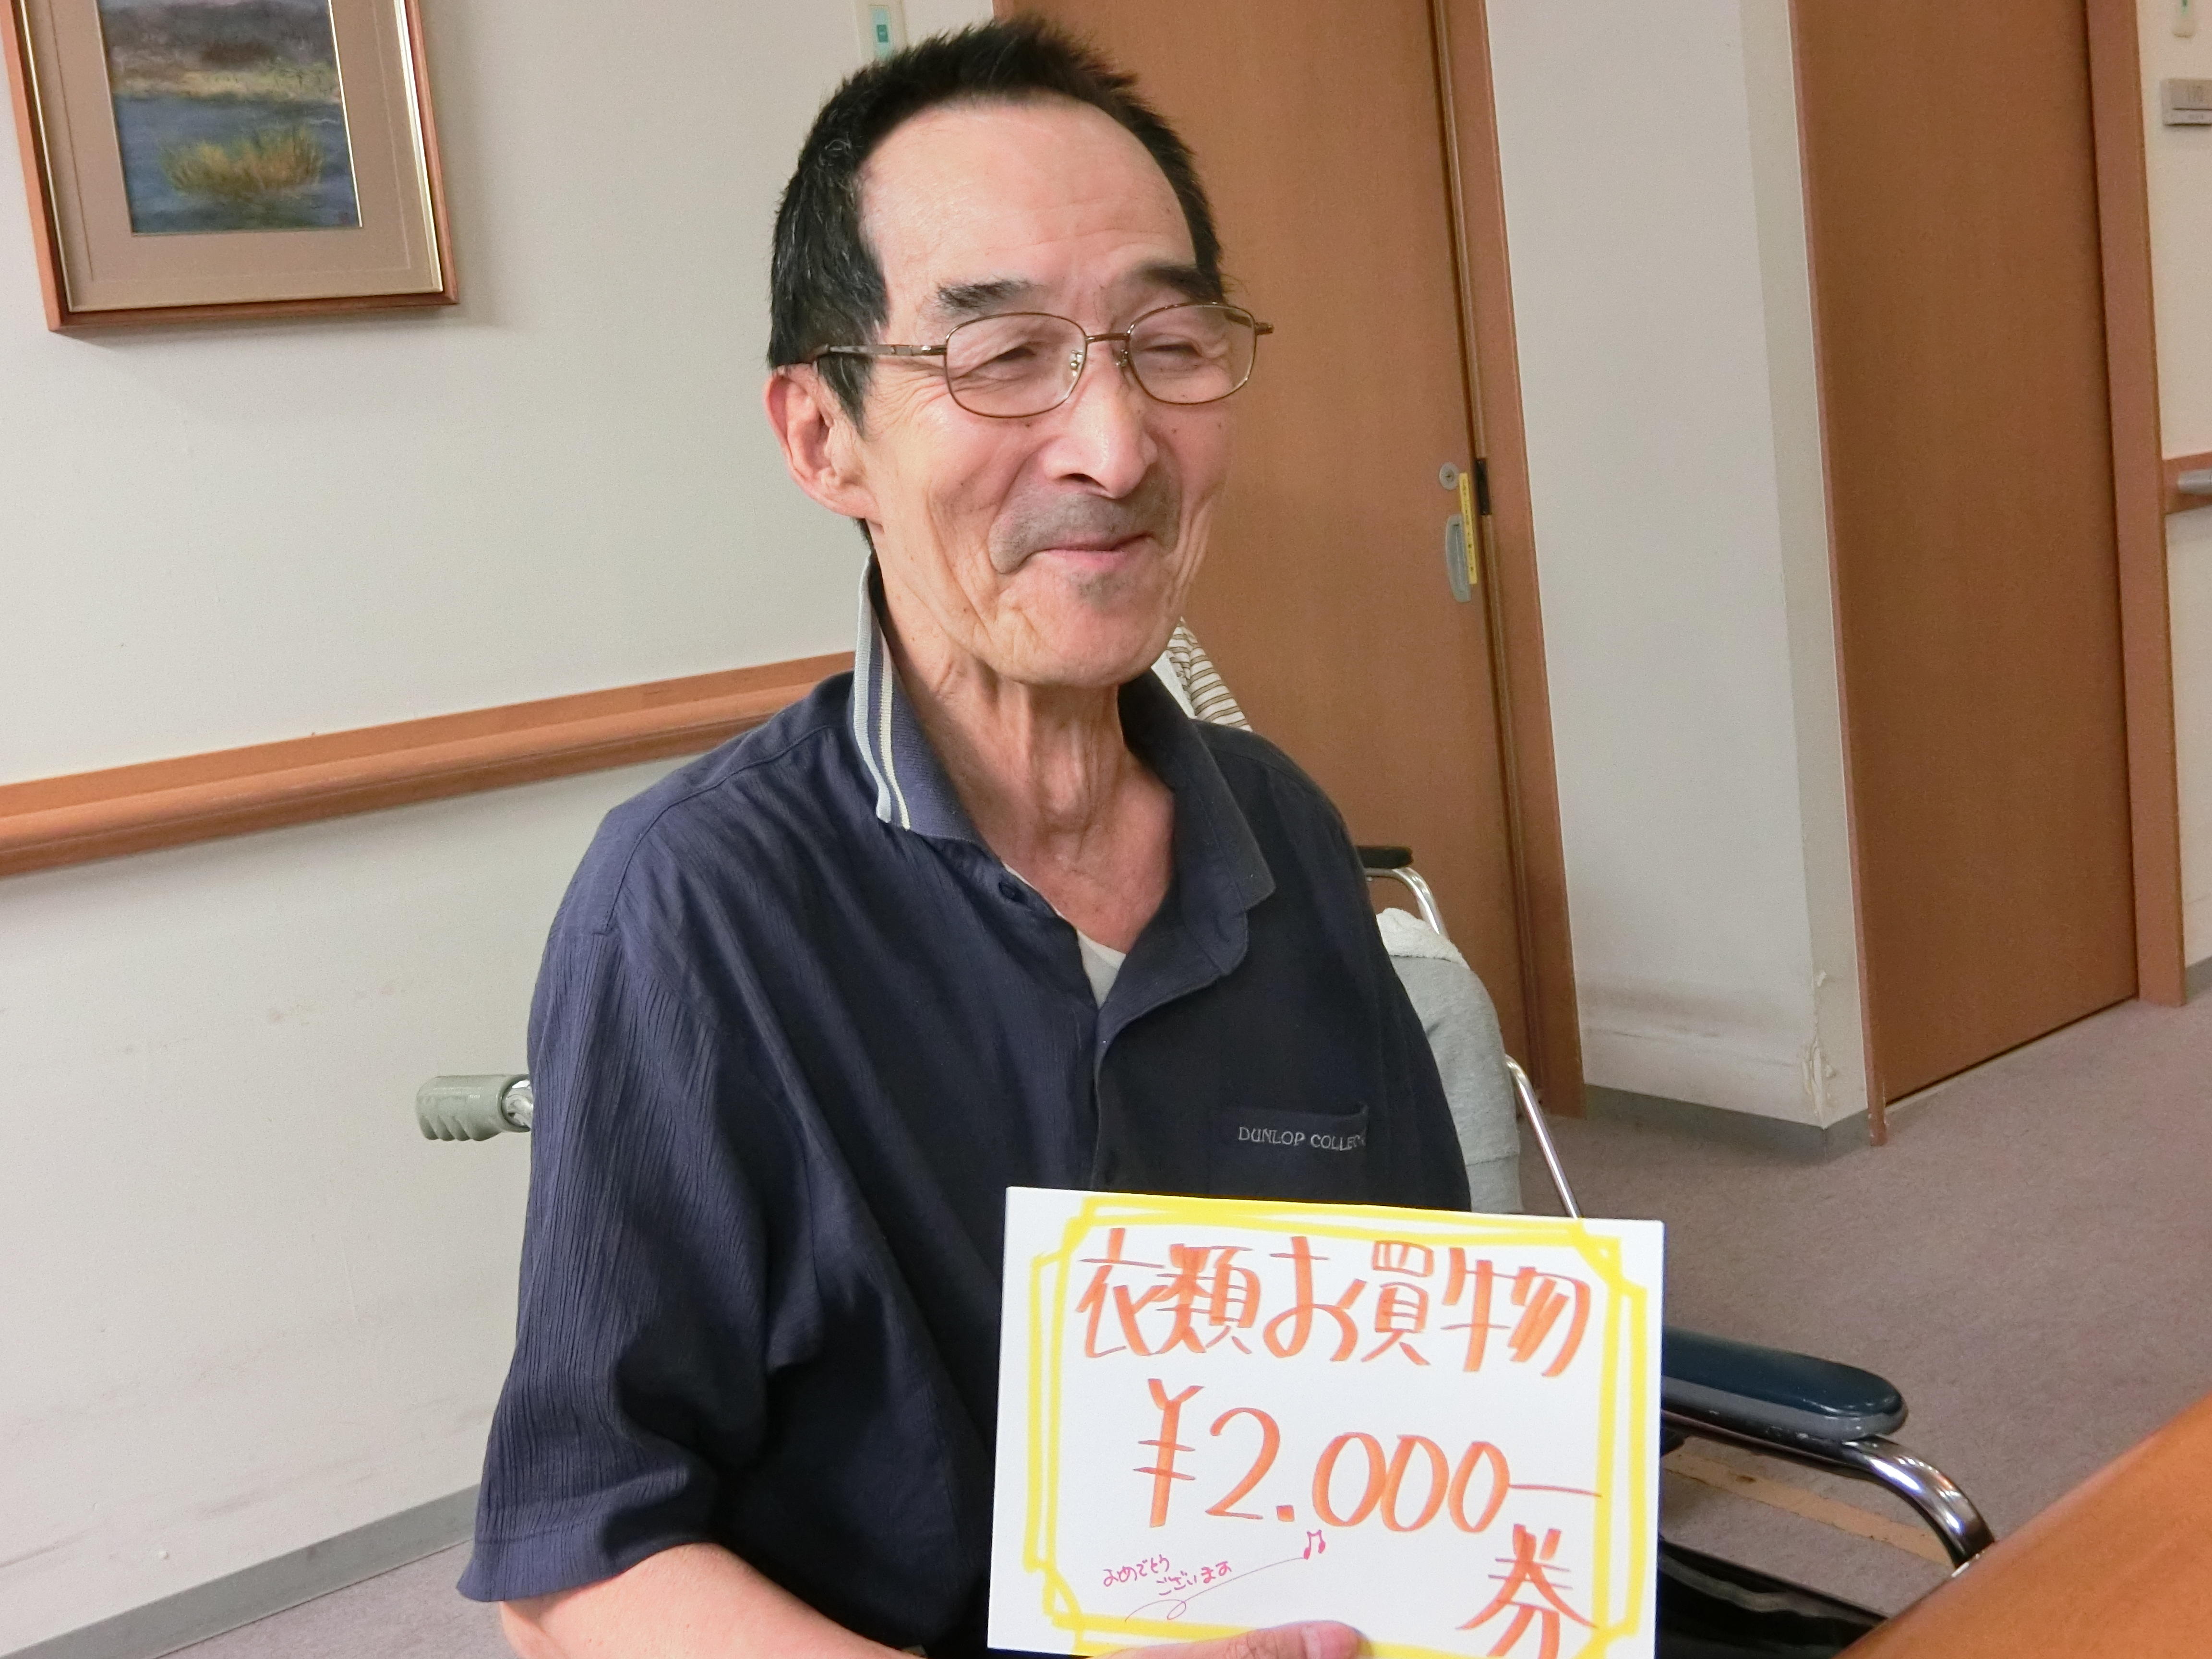 DUNLOP COLLEC
衣類お買物
¥2.000ー
券
おめでとう
ございます